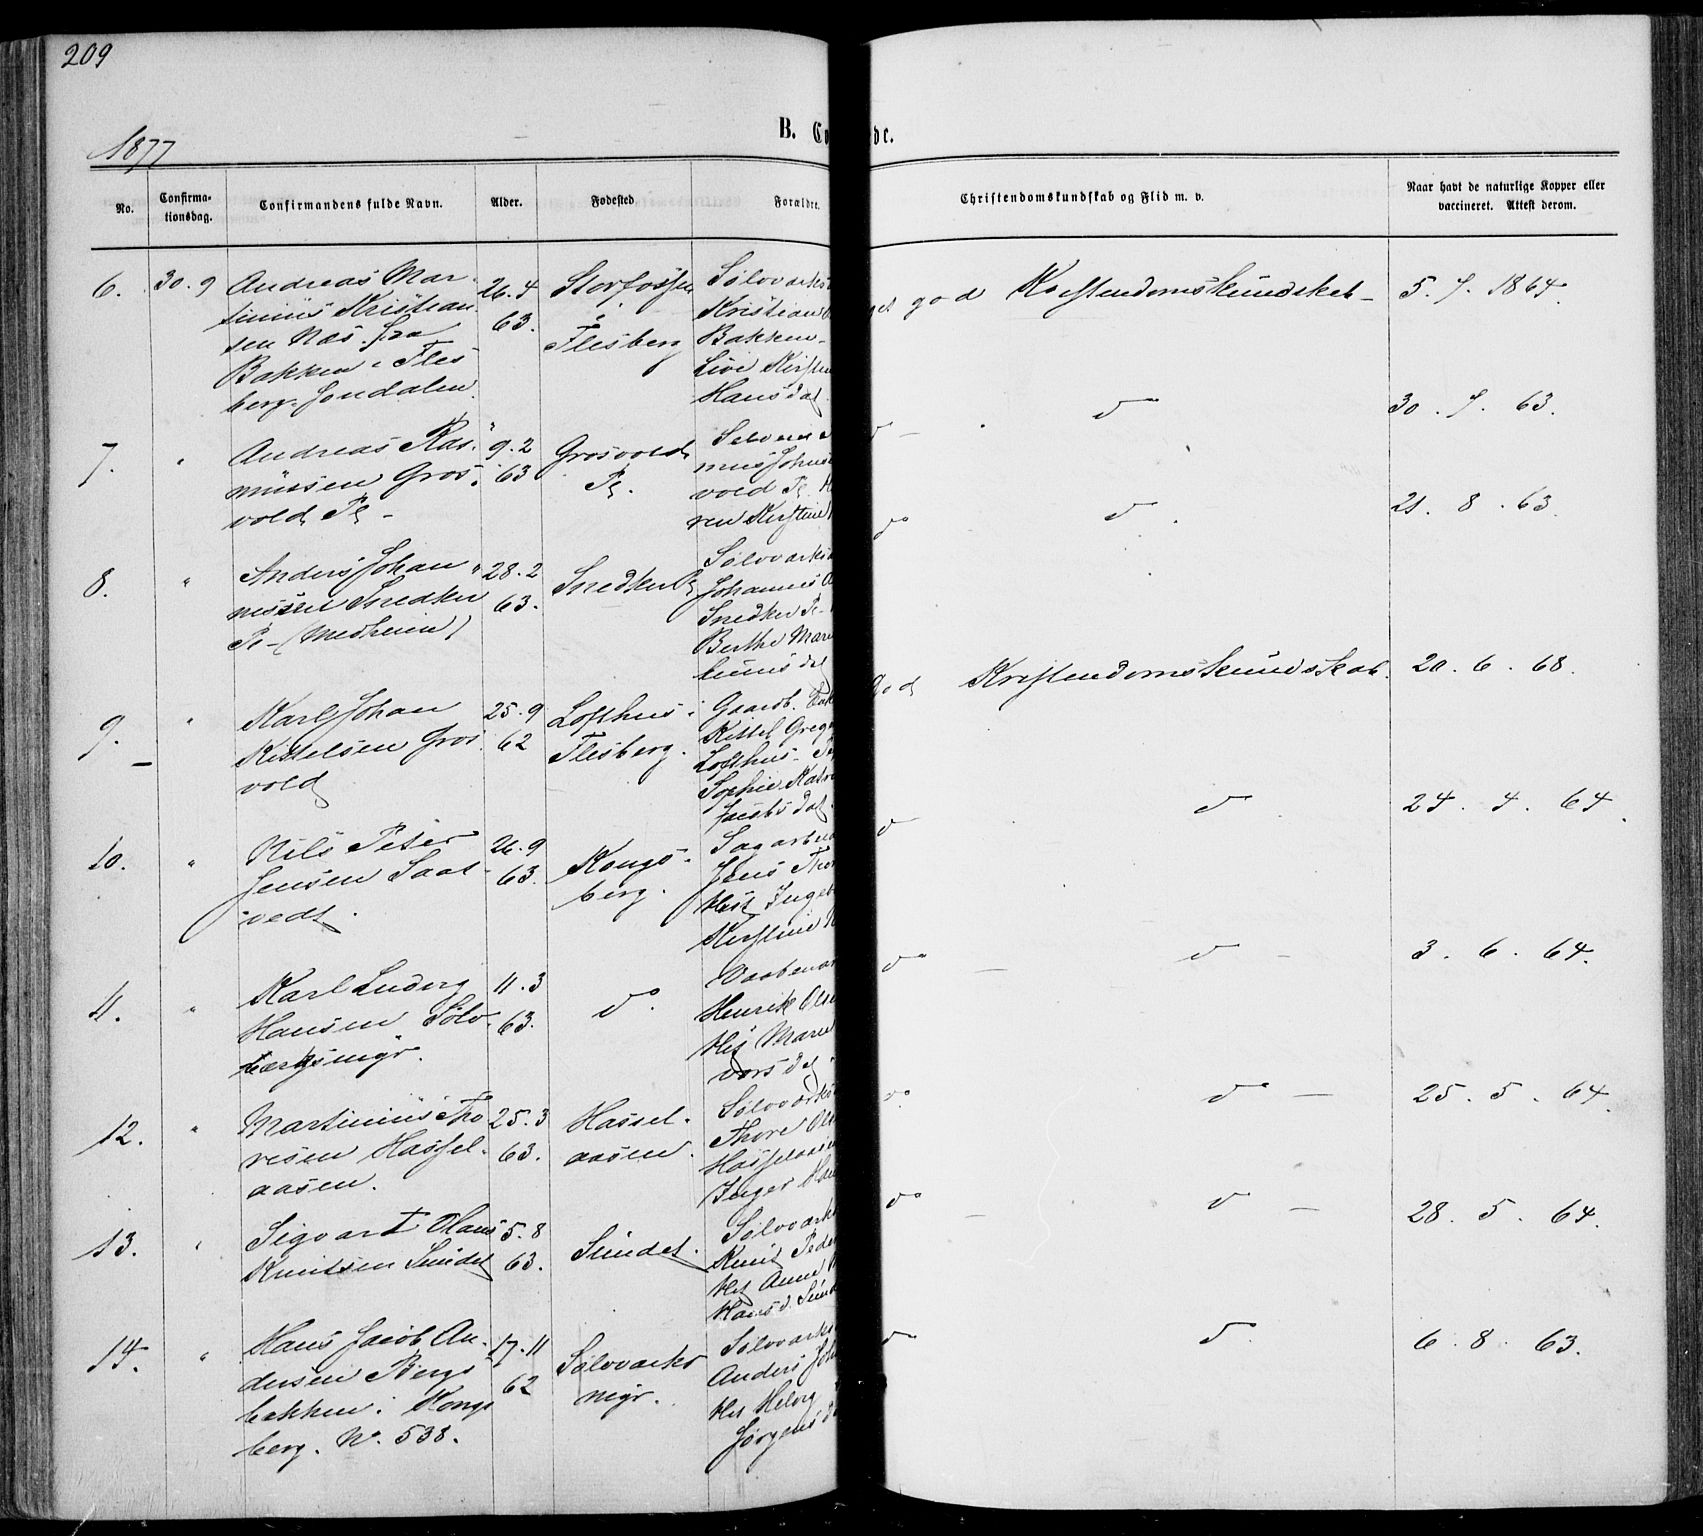 209
1877
B. Co
de.
No.
Confirma-
tionsdag.
Confirmandens fulde Navn.
Alder.
Fødested
Forældre.
Christendomskundskab og Flid m. v.
Naar havt de naturlige Kopper eller
vaccineret. Attest derom.
6. 30.9 Andreas Mar-
tinius Kristian
sen Næs fra
Bakken i Fles
berg. Jondalen.
26.4
63.
Storfossen
i
Flesberg
Sølvværks
Kristian
Bakken-
Live Kirsten
Hansdat.
get god Kristendomskundskab - 5. 7. 1864.
7. " Andreas Ras-
müssen Gros
vold Pl -
9.2
63
Grosvold
Pl.
mus Johns
vold Pl.
ren Kirstine
do 30. 7. 63.
8. " Anders Johan
nessen Snedker
Pl- (Medheim)
28.2
63.
Snedker Pl
Sølvværks
Johannes A
Snedker Pl-
Berthe Mari
do do. 21. 8. 63.
9. " Karl Johan
Kittelsen Gros
vold
25.9
62
Lofthus i
Flesberg.
Gaardb.
Kittel Greg
Lofthus-
Sophie Katr
Jacobsdat.
God Kristendomskundskab. 20. 6. 68.
10. " Nils Peter
Jensen Saat
vedt.
26.9
63.
Kongs-
berg.
Sagarbei
Jens Thor
Hst Ingeb
Kirstine
do do 24. 4. 64.
11. " Karl Ludvig
Hansen Sølv-
værksmgr.
11.3
63.
do.
Henrik Olse
Hst Maren
vorsdat
do - do - 3. 6. 64.
12. " Martinius Tho
resen Hassel-
aasen.
25.3
63.
Hassel-
aasen.
Sølvværks
Thore Ols
Hasselaasen
Inger Han
do. do - 25. 5. 64.
13. " Sigvart Olaus
Knutsen Sündet
5.8
63.
Sündet.
Sølvværk
Knut Peder
Hst Anne
Hansd. Sünd
do - do - 28. 5. 64.
14. " Hans Jacob An-
dersen Bergs
bakken i Kongs
berg. No. 538.
17.11
62
Sølvværks
mgr.
Sølvværks
Anders Joh
Hst Helvig
Jørgensd
do do. 6. 8. 63.